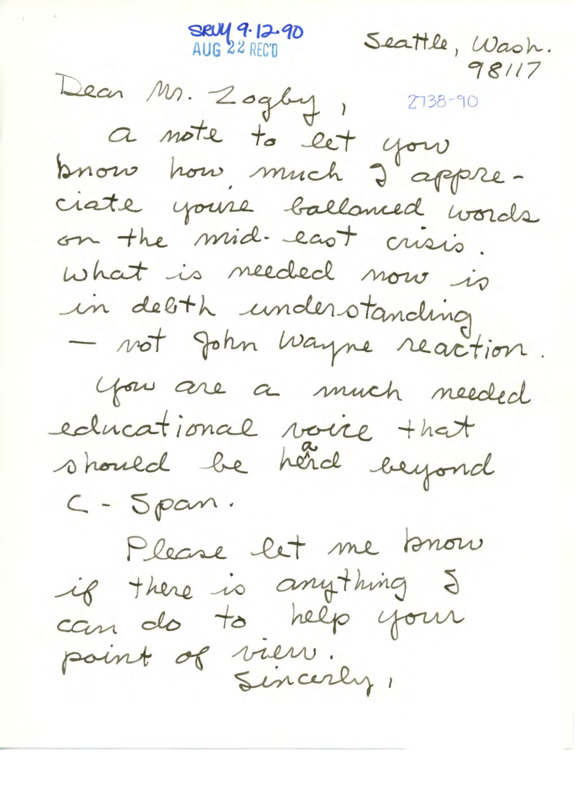 SRVY 9-12-90
AUG 22 REC'D
Seattle, Wash.
98117
2738-90
Dear Mr. Zogby,
a note to let you
know how much I appre-
ciate youre ballanced words
on the mid-east crisis.
What is needed now is
in debth understanding
— not John Wayne reaction.
You are a much needed
educational voice that
should be heard beyond
C-Span.
Please let me know
if there is anything I
can do to help your
point of view.
Sincerly,